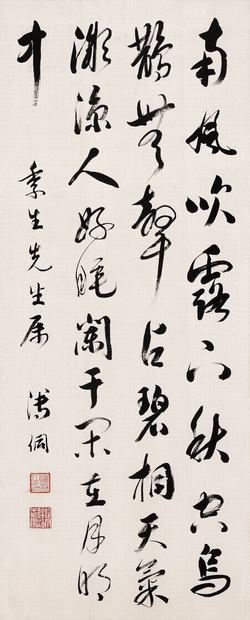 南風吹露下秋空烏
鵲無聲占碧桐天氣
漸涼人好睡闌干閑在月明
中
季生先生屬
溥侗